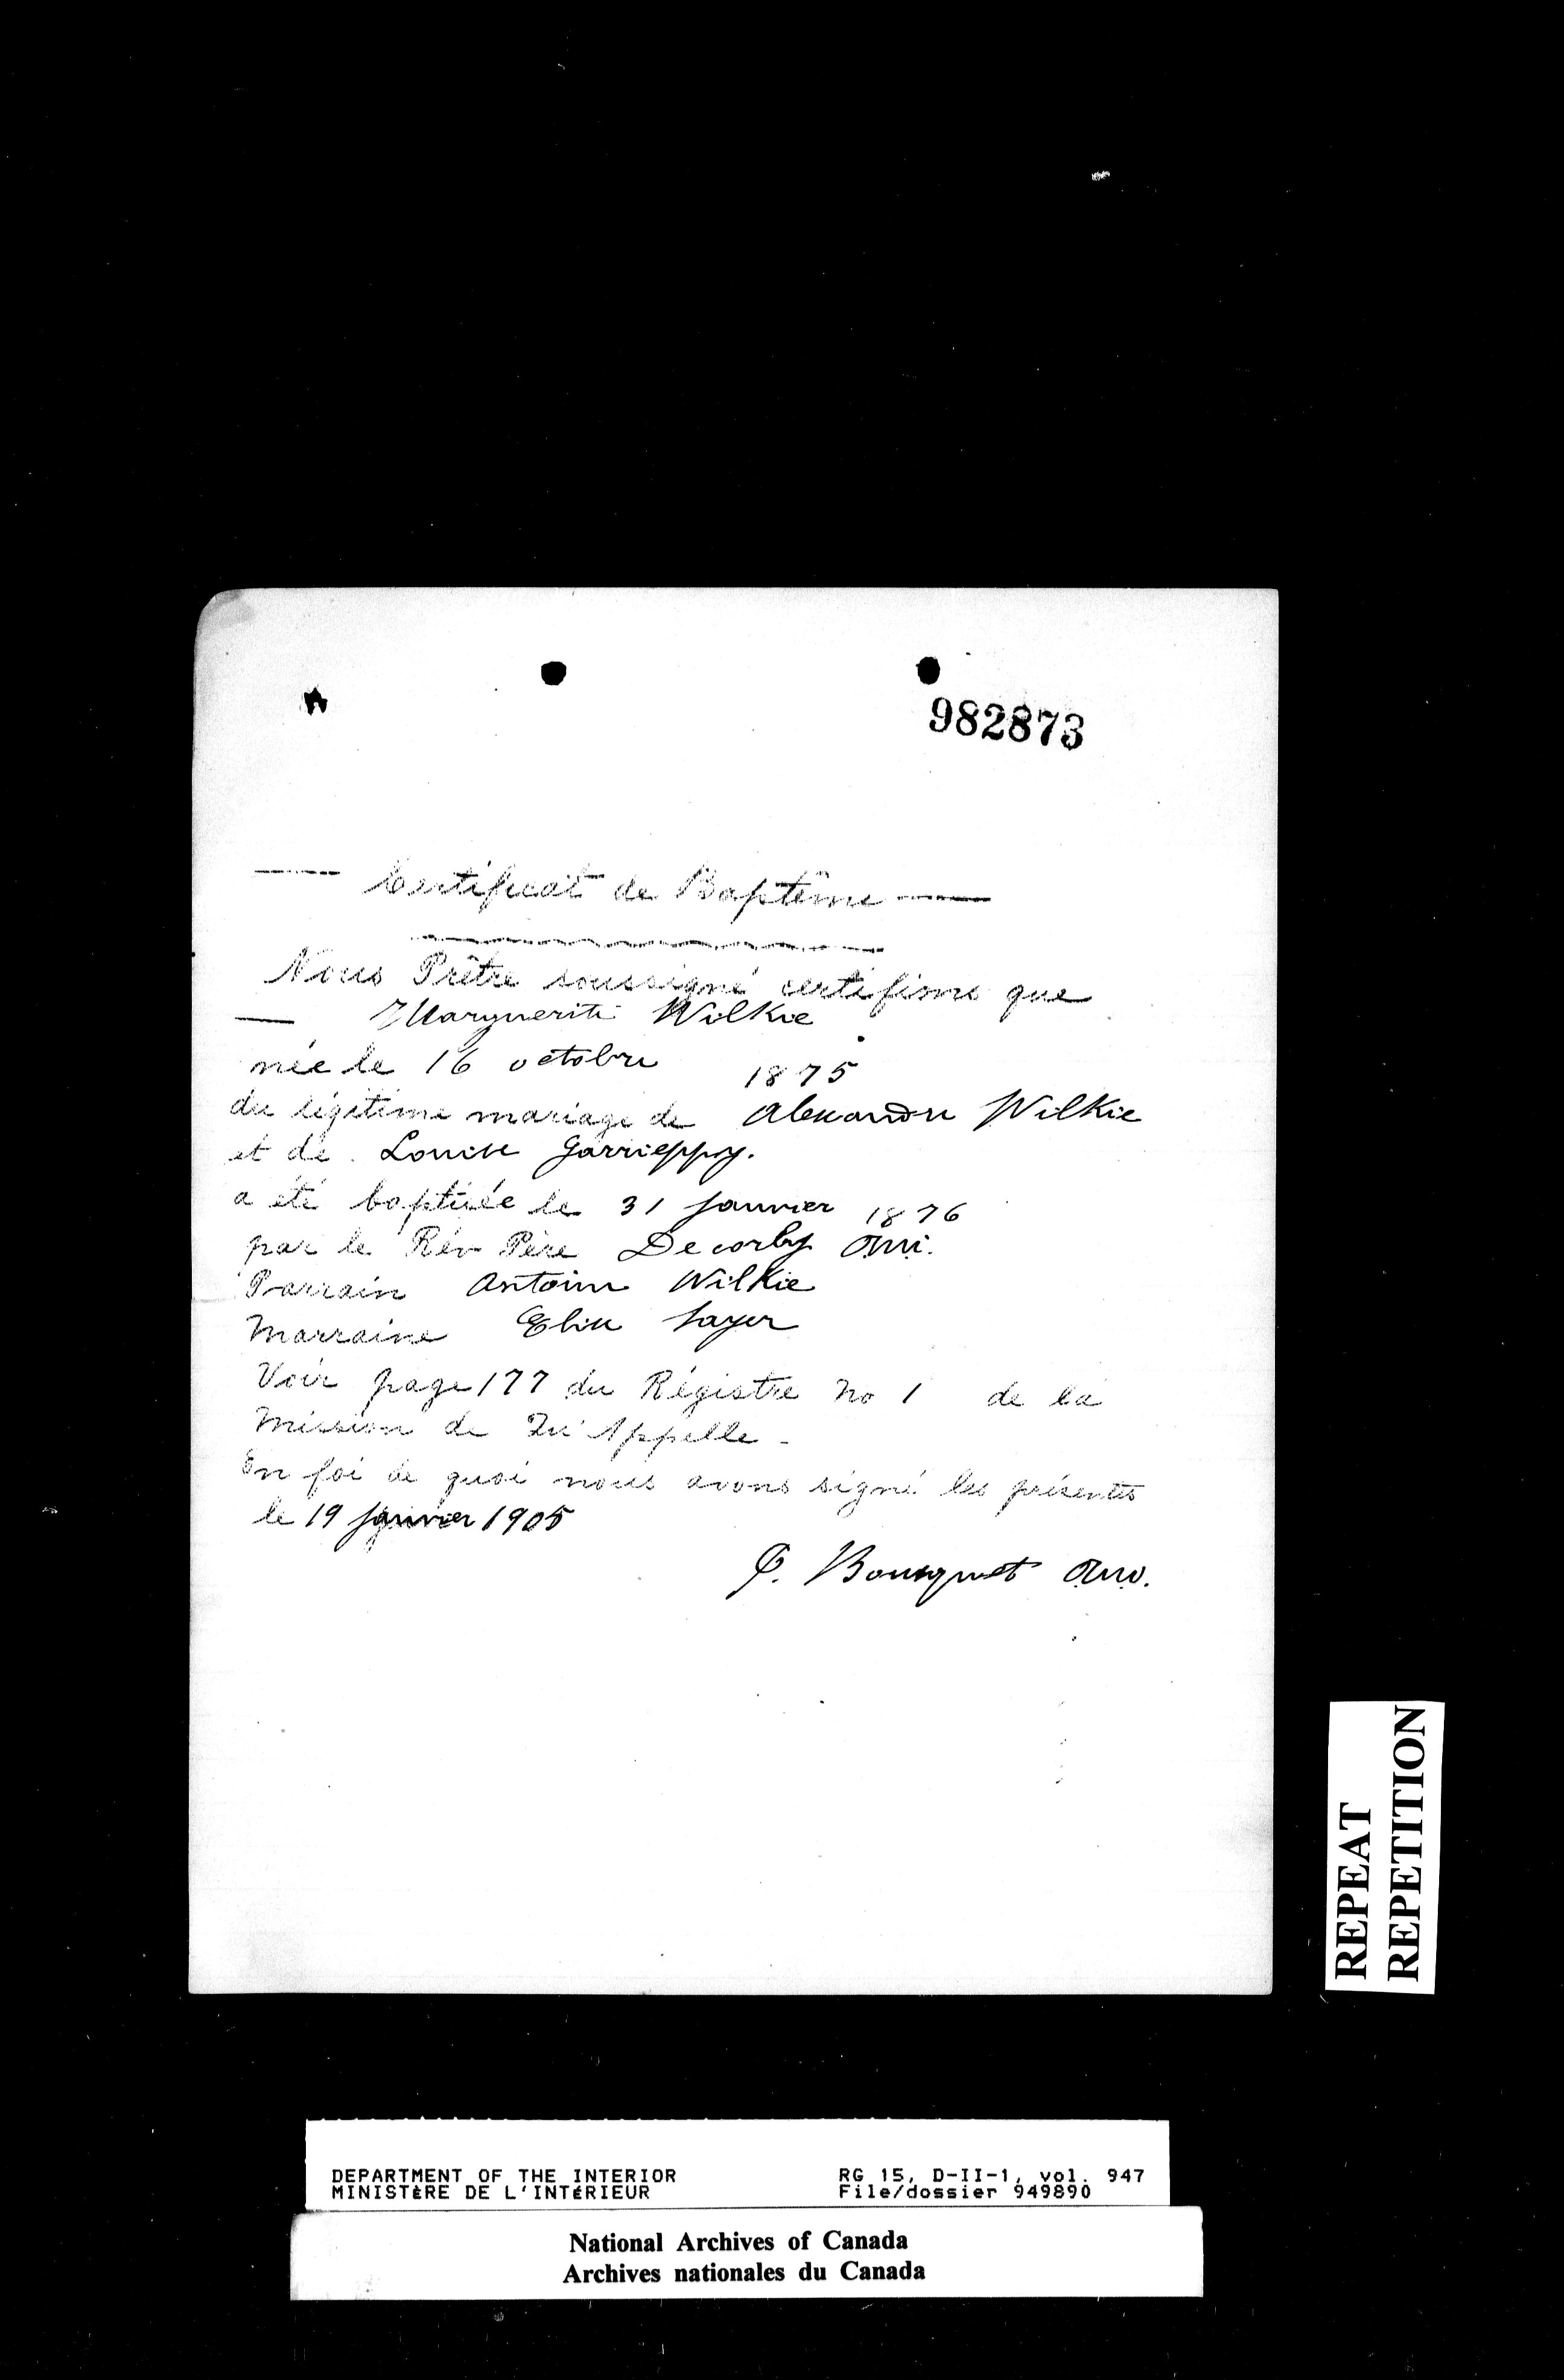 982873
Certificat de Baptême
Nous Prêtre soussigné certifions que
Marguerite Wilkie
née le 16 octobre 1875
du légitime mariage de Alexandre Wilkie
et de Louise Garrieppy.
a été baptisée le 31 janvier 1876
par le Rév Père Decorby omi.
Parrain Antoine Wilkie
Marraine Elise Sayer
Voir page 177 du Régistre No 1 de la
Mission de Qu'Appelle -
En foi de quoi nous avons signé les présentes
le 19 janvier 1905
P. Bousquet omi.
REPEAT
REPETITION
DEPARTMENT OF THE INTERIOR RG 15, D-II-1, vol. 947
MINISTèRE DE L'INTéRIEUR File/dossier 949890
National Archives of Canada
Archives nationales du Canada